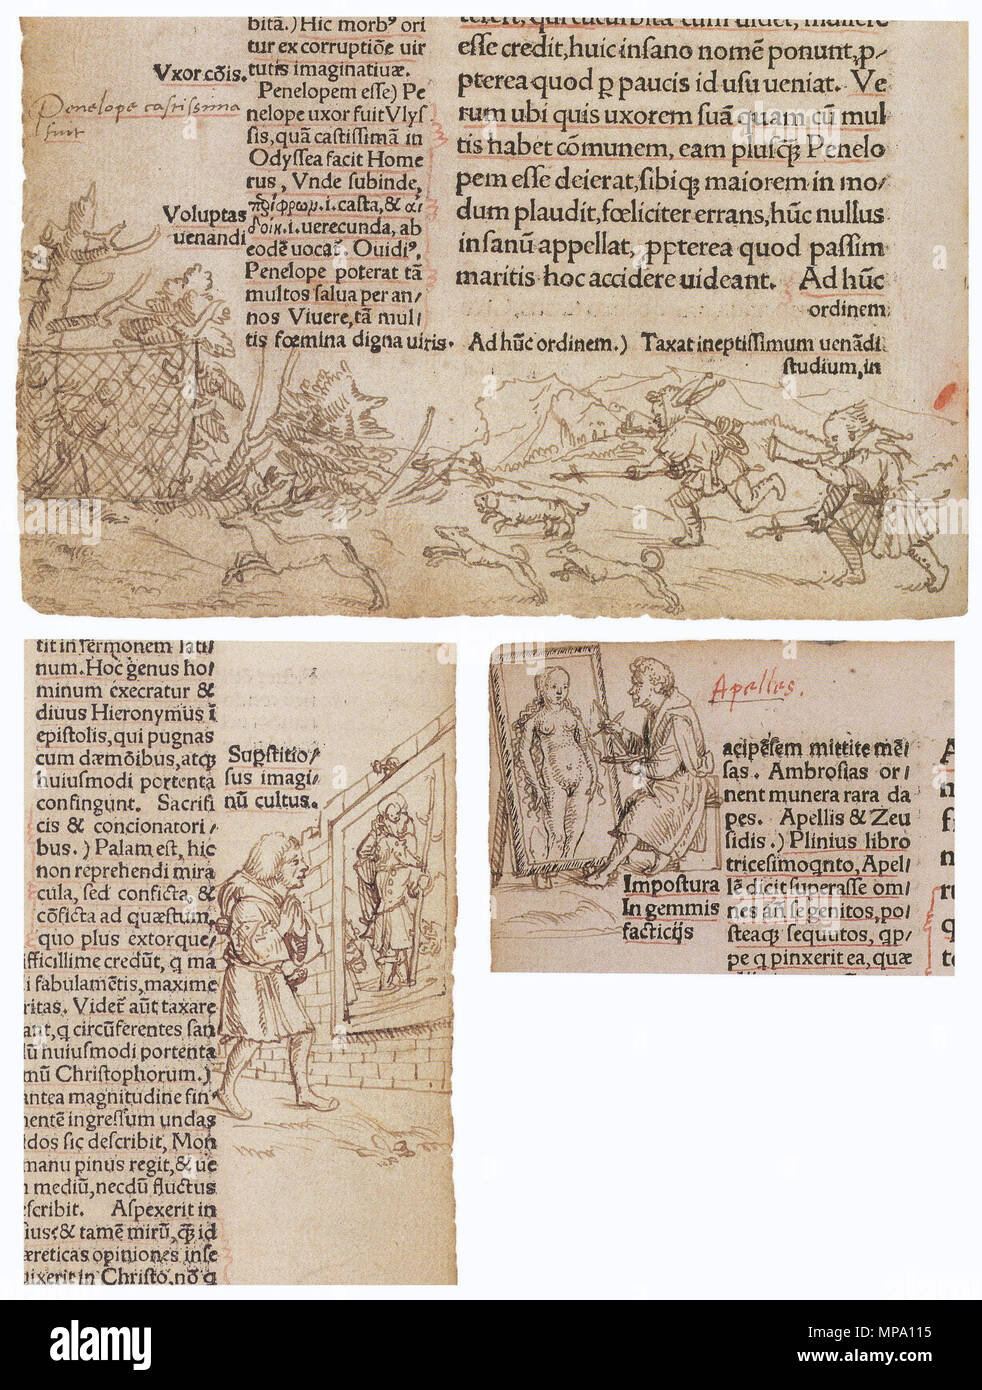 bitā.) Hic morbꝰ ori
tur ex corruptiōe uir
Vxor cōis.
tutis imaginatiuæ.
Penelope castissima
fuit
Penelopem esse) Pe
nelope uxor fuit Vlyſ
ſis, quā castiſſimā in
Odyſſea facit Home
rus, Vnde ſubinde,
.i. caſta, &
Voluptas
uenandi
.i. uerecunda, ab
eodē uocat̄. Ouidiꝰ.
Penelope poterat tā
multos ſalua per an/
nos Viuere, tā mul/
tis fœmina digna uiris.
eſſe credit, huic inſano nomē ponunt, ꝓ/
pterea quod ꝑ paucis id uſu ueniat. Ve
rum ubi quis uxorem ſuā quam cū mul
tis habet cōmunem, eam pluſꝙ̄ Penelo
pem eſſe deierat, ſibiqꝫ maiorem in mo/
dum plaudit, fœliciter errans, hūc nullus
inſanū appellat, ꝓpterea quod paſſim
maritis hoc accidere uideant. Ad hūc
ordinem
Ad hūc ordinem.) Taxat ineptiſſimum uenādi
ſtudium, in
tit in ſermonem lati/
num. Hoc genus ho/
minum execratur &
diuus Hieronymus ī
epiſtolis, qui pugnas
cum dæmōibus, atqꝫ
huiuſmodi portenta
confingunt. Sacrifi
cis & concionatori/
bus.) Palam eſt, hic
non reprehendi mira
cula, ſed conficta, &
cōficta ad quæſtum,
quo plus extorque/
ifficillime credūt, q ma
i fabulamētis, maxime
ritas. Videt̄ aūt taxare
ant, q circūferentes ſan
lū huiuſmodi portenta
mū Chriſtophorum.)
antea magnitudine fin/
nentē ingreſſum undas
idos ſic deſcribit, Mon
manu pinus regit, & ue
mediū, necdū fluctus
eſcribit. Aſpexerit in
& tamē mirū, ꝙ̄ id
æreticas opiniones inſe
uixerit in Chriſto, nō q
Supſtitio/
ſus imagi/
nū cultus.
Apelles.
acipēſem mittite mē/
ſas. Ambroſias or/
nent munera rara da
pes. Apellis & Zeu
ſidis.) Plinius libro
triceſimoqnto, Apel/
lē dicit ſuperaſſe om/
nes ān ſe genitos, po/
ſteaqꝫ ſequutos, qp/
pe q pinxerit ea, quæ
Impoſtura
In gemmis
facticijs
alamy
Image ID: MPA115
www.alamy.com